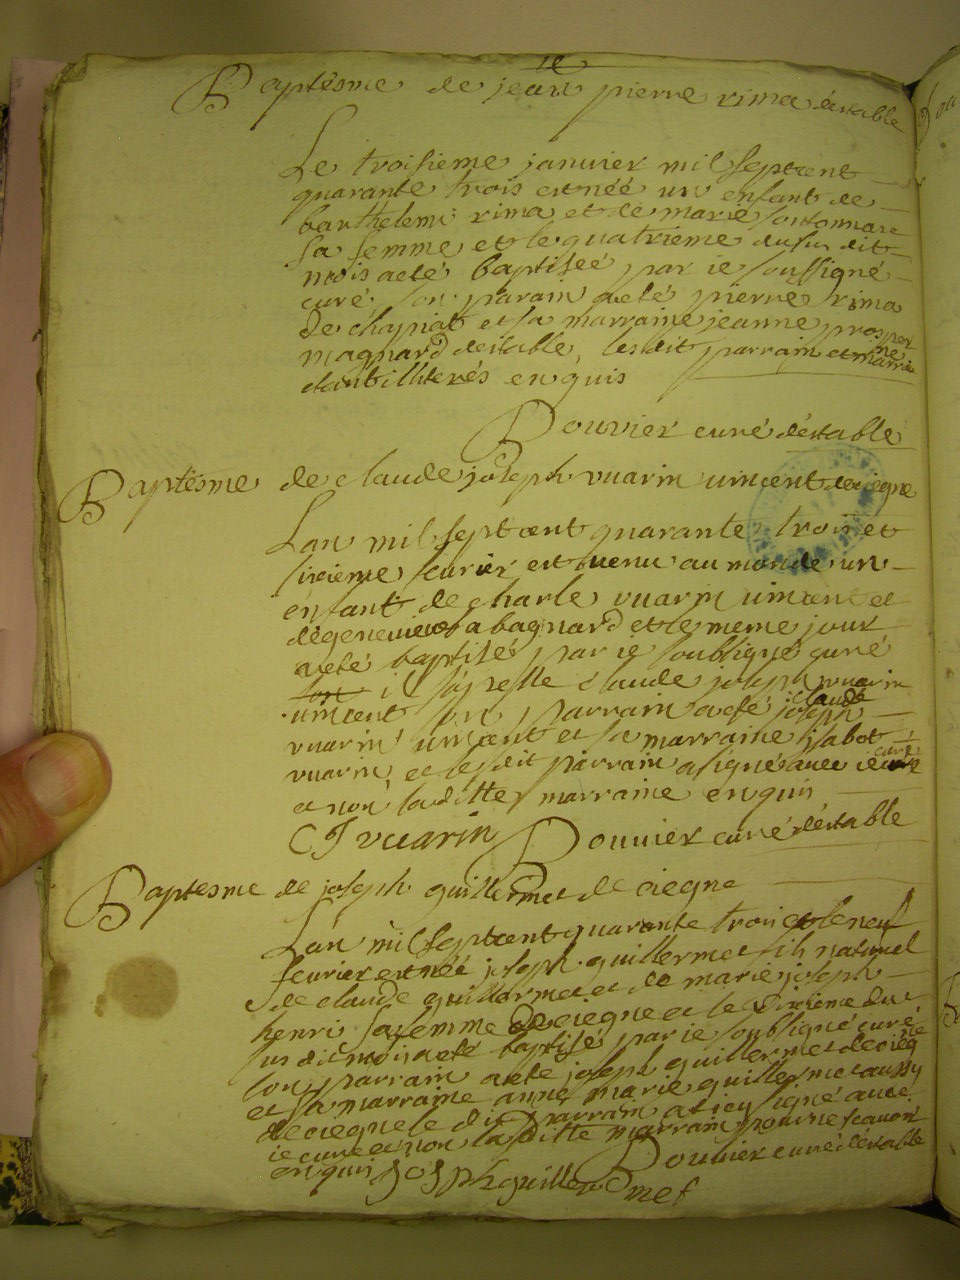 Baptésme de jean pierre rima déstable
Le troisieme janvier mil septcent
quarante trois est néé un enfant de
barthelemi rima et de marie
sa femme et le quatrieme du sus dit
mois a eté baptiséé par ie soussigné
curé son parain a eté pierre rima
de chapiat et sa marraine jeanne prosper
magnard déstable, les dit parrain et marraine
étant illiterés enquis
Bouvier curé déstable
Baptésme de claude joseph vuarin uincent deciegne
Lan mil septcent quarante trois et
sixieme feurier est uenu au monde un
énfant de charle vuarin uincent et
dégenevieve abagnard et le meme jour
a eté baptisé par ie soubsigné curé
il sapelle claude joseph vuarin
uincent son parrain a eté joseph claude
vuarin uincent et sa marraine isabot
vuarin et le dit parrain a signé avec ie curé
et non laditte marraine enquis
CJ vuarin Bouvier curé déstable
Baptesme de joseph guillermet de ciegne
Lan mil septcent quarante trois et le neuf
feurier est néé joseph guillermet fils naturel
de claude guillermet et de marie joseph
henri sa femme de ciegne et le dixieme du
sus dit mois a eté baptisé par ie soubsigné curé
son parrain a eté joseph guillermet de ciegne
et sa marraine anne marie guillermet aussy
de ciegne le dit parrain a icy signé avec
ie curé et non la ditte marraine pour ne scavoir
enquis Bouvier curé déstable
Josphguillermet